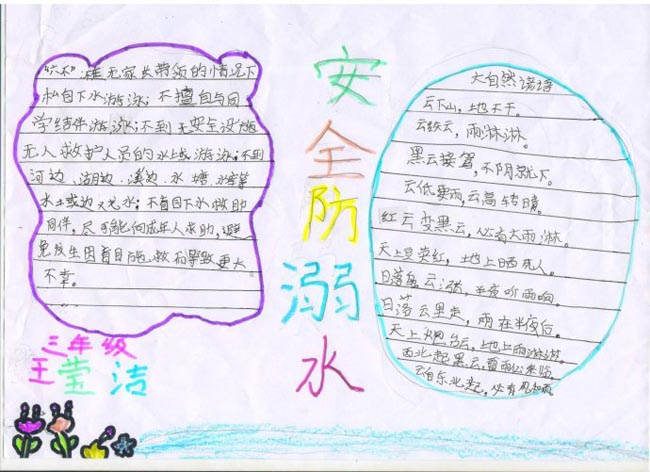 "六不":在无家长带领的情况下
私自下水游泳；不擅自与同
学结伴游泳；不到无安全设施
无人救护人员的水域游泳；不到
河边、湖边、溪边、水塘、水库等
水；不盲目下水救助
同伴，尽可能向成年人求助，避
免发生因盲目施救而导致更大
不幸。
三年级
王莹洁
安
全
防
溺
水
大自然谚语
云下山，地不干。
云绞云，雨淋淋。
黑云接驾，不阴就下。
云低要雨，云高转晴。
红云变黑云，必有大雨淋。
天上红，地上晒死人。
日落乌云涨，半夜听雨响。
日落云里走，雨在半夜后。
天上炮台云，地上雨淋淋。
西北起黑云，雷雨必来临。
云自东北起，必有风和雨。